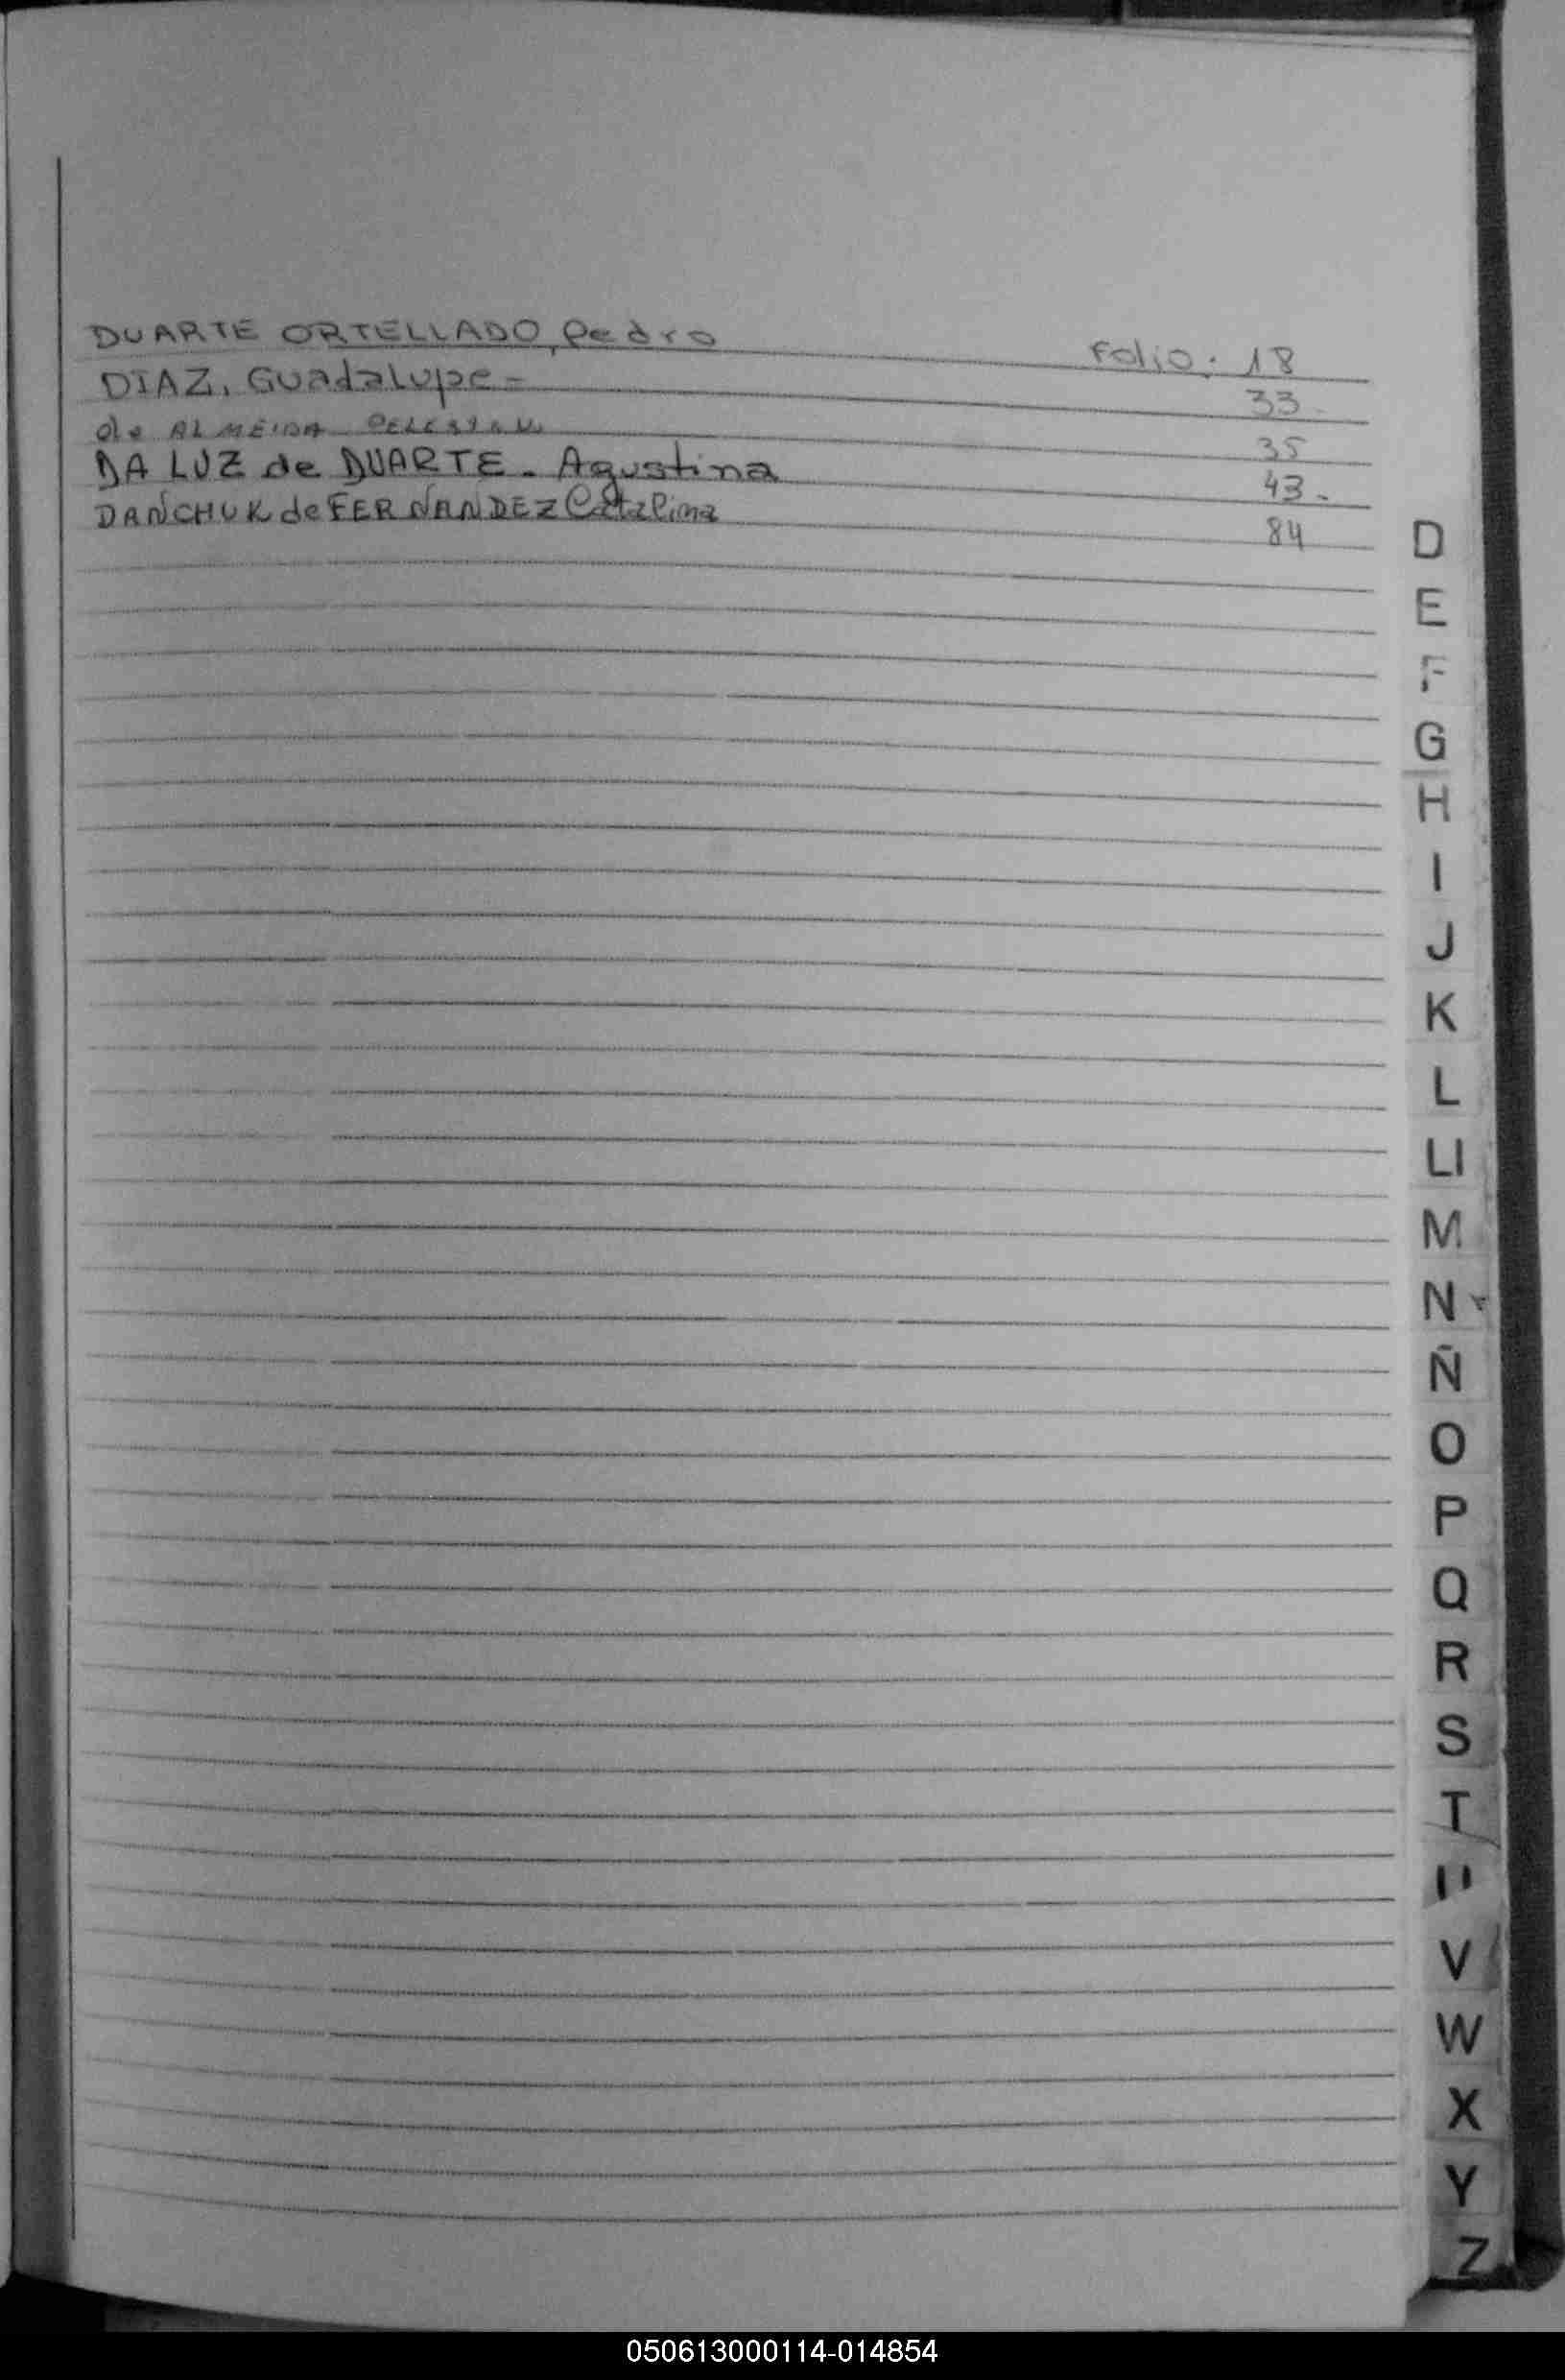 DUARTE ORTELLADO, Pedro Folio: 18
DIAZ, Guadalupe - 33 -
de ALMEIDA 35
DA LUZ de DUARTE - Agustina 43 -
DANCHUK de FERNANDEZ Catalina 84
D
E
F
G
H
I
J
K
L
M
N
Ñ
O
P
Q
R
S
T
V
W
X
Y
Z
050613000114-014854